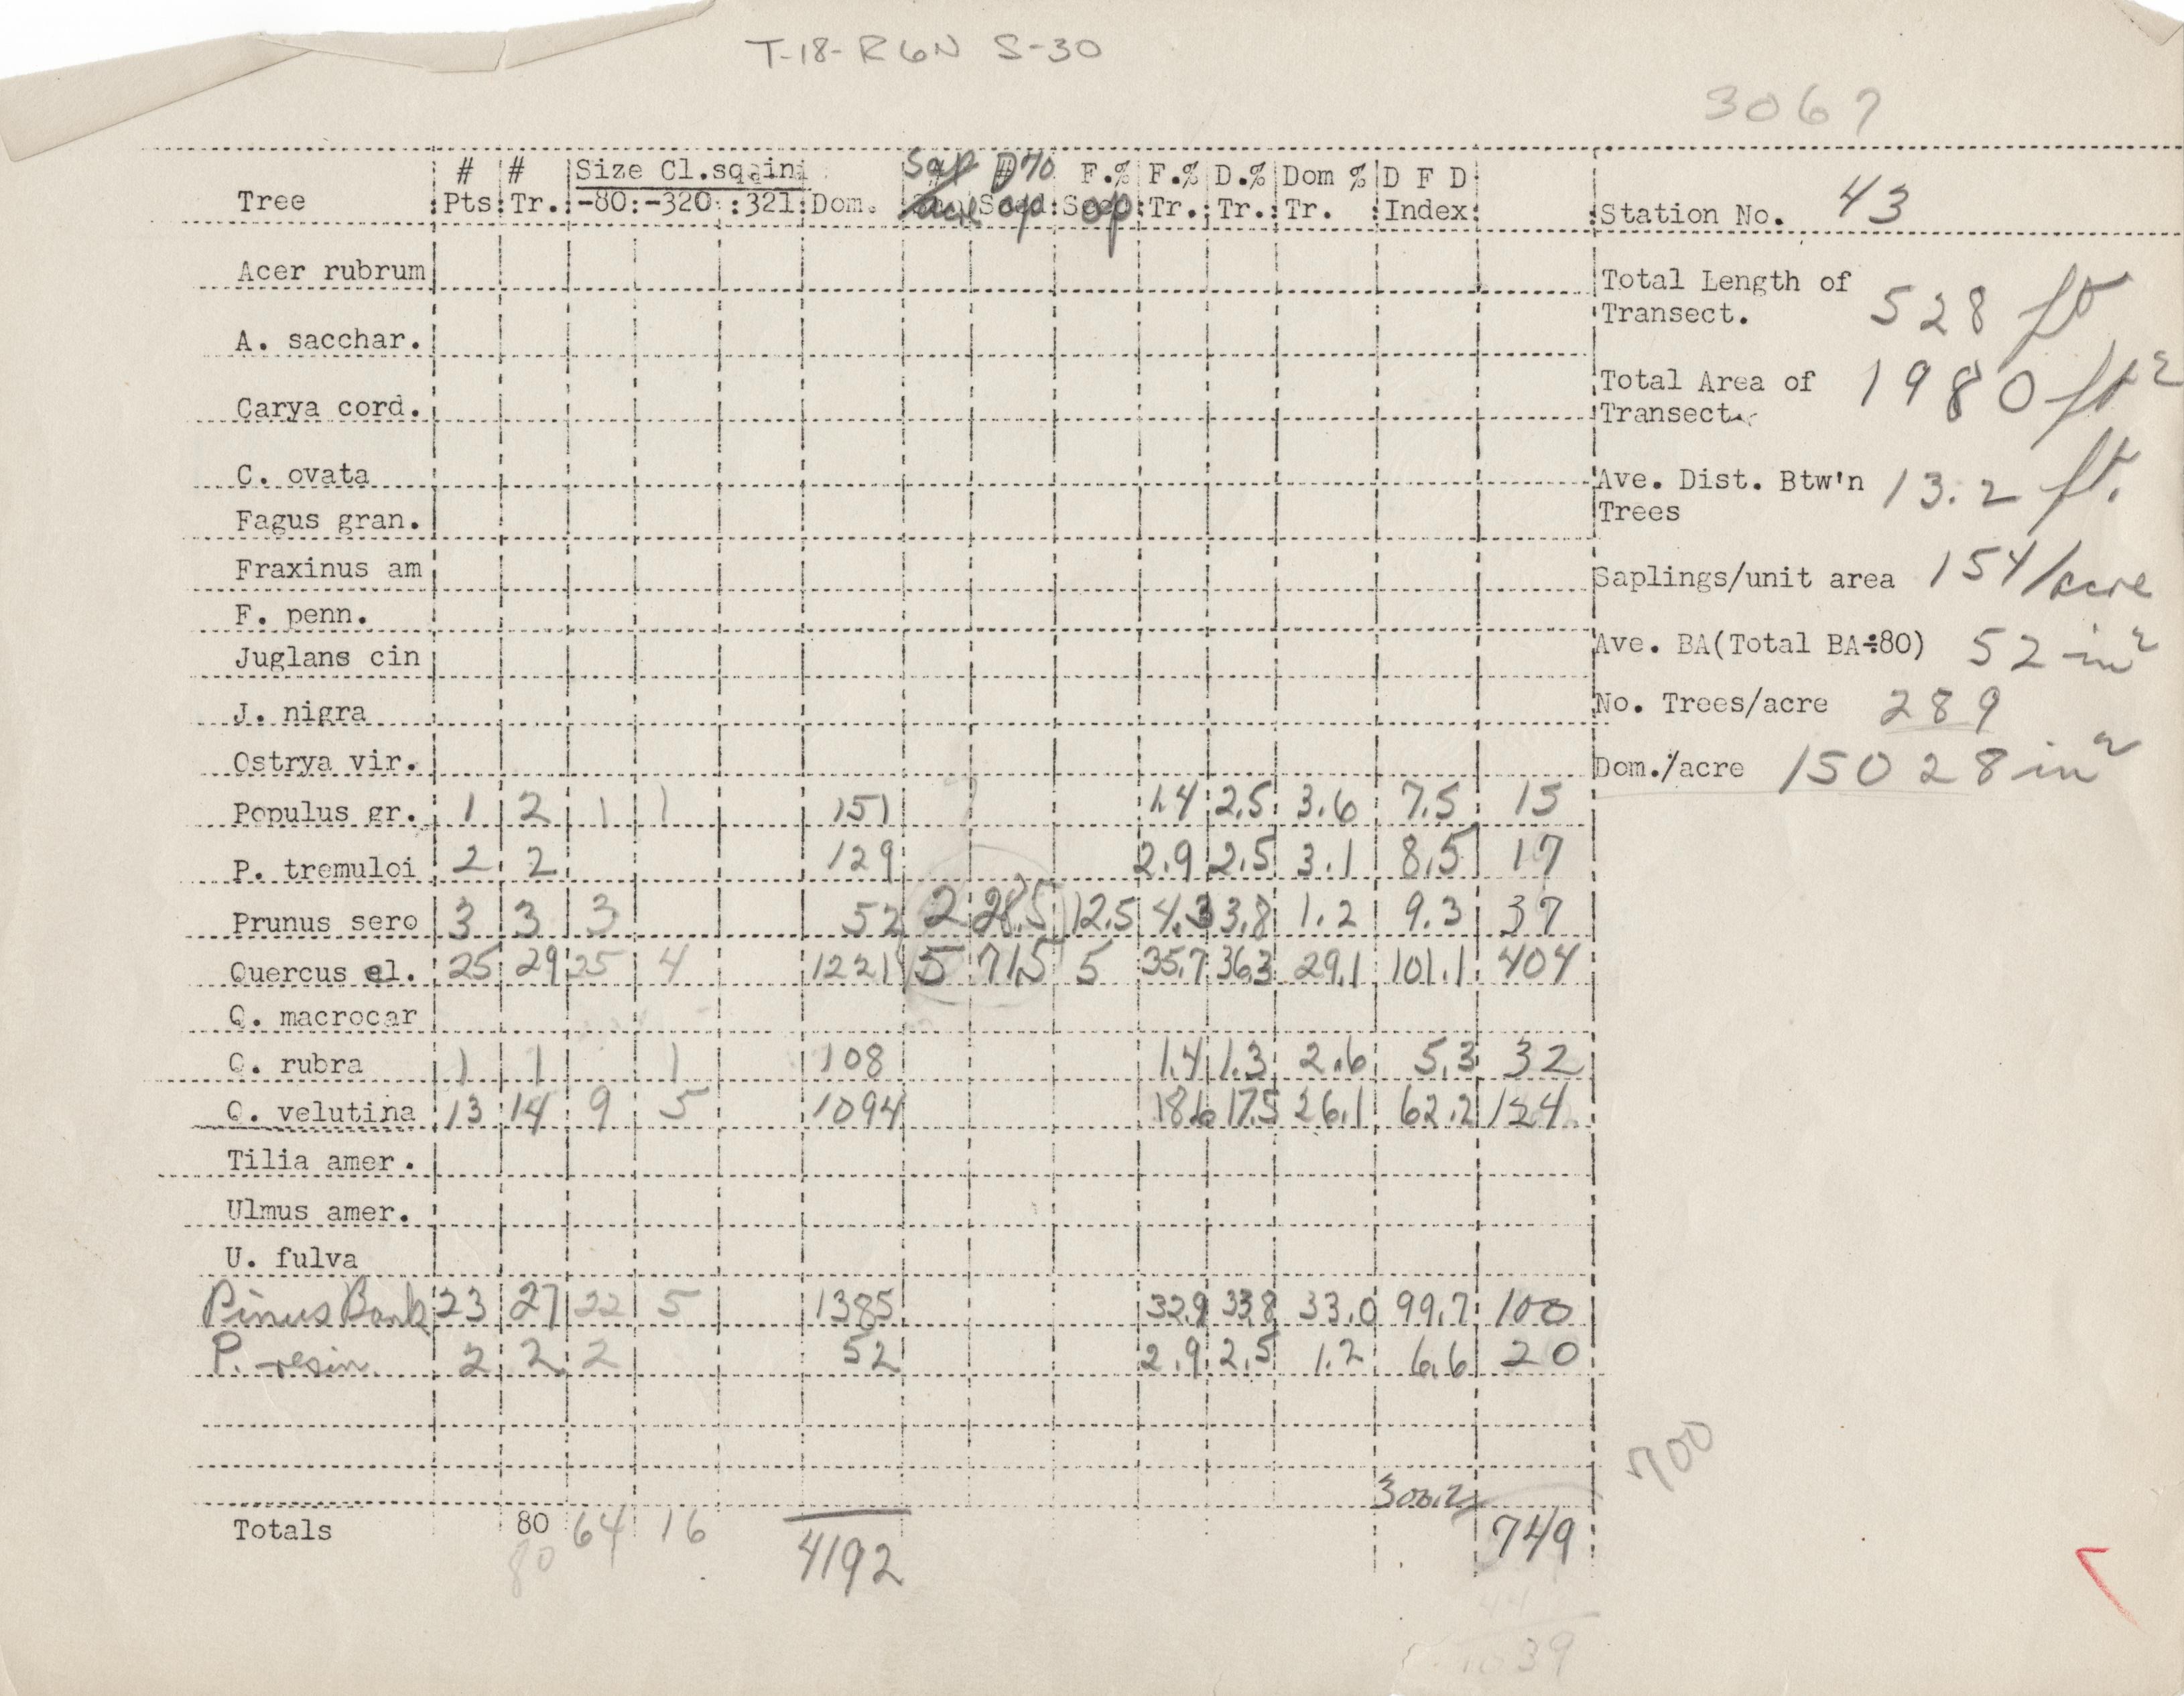 T-18-R6N S-30
3067
# # Size Cl.sq.in Sap D% F.% F.% D.% Dom % D F D
Tree Pts. Tr. -80: -320: :321: Dom. acre Sap Sap Tr. Tr. Tr. Index
Station No. 43
Acer rubrum
Total Length of Transect. 528 ft
A. sacchar.
Total Area of Transect. 1980 ft²
Carya cord.
C. ovata
Ave. Dist. Btw'n Trees 13.2 ft.
Fagus gran.
Fraxinus am
Saplings/unit area 154/acre
F. penn.
Juglans cin
Ave. BA(Total BA÷80) 52 in²
J. nigra
No. Trees/acre 289
Ostrya vir.
Dom./acre 15028 in²
Populus gr. 1 2 1 1 151 1.4 2.5 3.6 7.5 15
P. tremuloi 2 2 129 2.9 2.5 3.1 8.5 17
Prunus sero 3 3 3 52 2 28.5 12.5 4.3 3.8 1.2 9.3 37
Quercus el. 25 29 25 4 1221 5 71.5 5 35.7 36.3 29.1 101.1 404
Q. macrocar
Q. rubra 1 1 1 108 1.4 1.3 2.6 5.3 32
Q. velutina 13 14 9 5 1094 18.6 17.5 26.1 62.2 124
Tilia amer.
Ulmus amer.
U. fulva
Pinus Bank 23 27 22 5 1385 32.9 33.8 33.0 99.7 100
P. resin. 2 2 2 52 2.9 2.5 1.2 6.6 20
700
300.2
Totals 80 64 16 4192 749
80
39